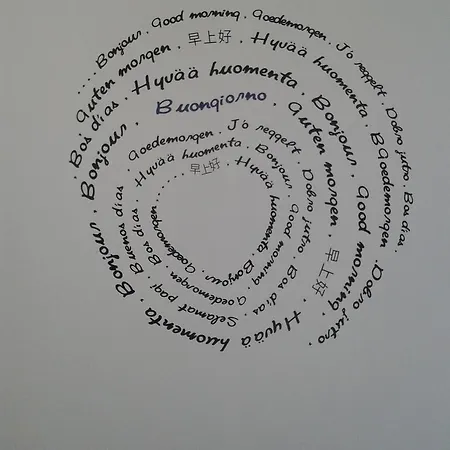 ....Bonjour. Good morning. Goedemorgen. Jó reggelt. Dobro jutro. Bos dias.
Bos dias. Guten morgen. 早上好. Hyvää huomenta. B Goedemorgen. Dobro jutro.
Bonjour. Hyvää huomenta. Bonjour. Good morning.
Buongiorno. Guten morgen. 早上好. Hyvää huomenta. Bonjour. Bonjour.
Goedemorgen. Jó reggelt. Dobro jutro. Bos dias. Selamat pagi. Buenos días.
Hyvää huomenta. Bonjour. Good morning. Goedemorgen. Bos dias.
早上好. Hyvää huomenta. Bonjour. Goedemorgen......